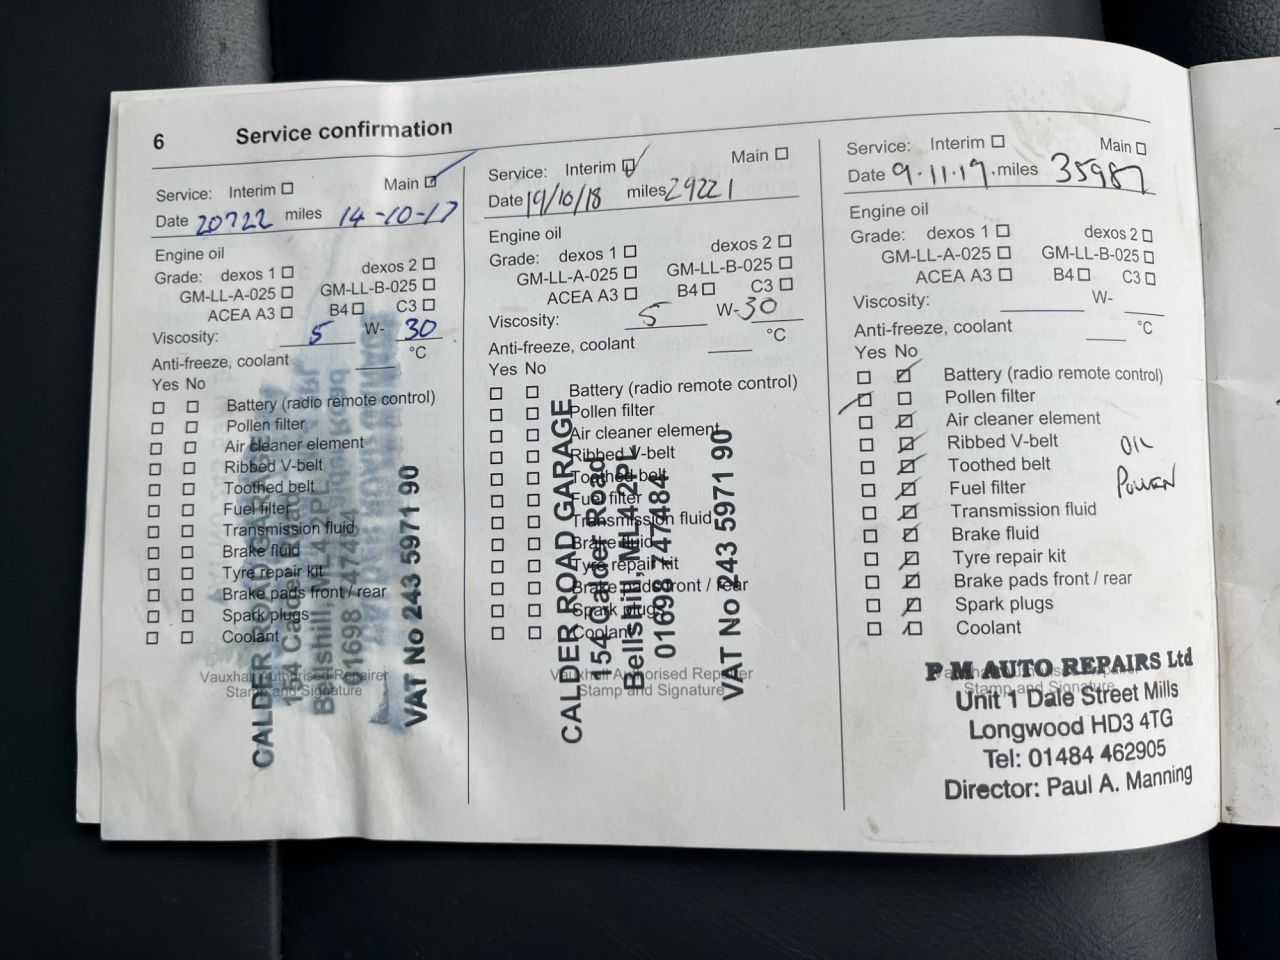 6 Service confirmation
Service: Interim Main
Date 20722 miles 14-10-17
Engine oil
Grade: dexos 1 dexos 2
GM-LL-A-025 GM-LL-B-025
ACEA A3 B4 C3
Viscosity: 5 W- 30
Anti-freeze, coolant °C
Yes No
Battery (radio remote control)
Pollen filter
Air cleaner element
Ribbed V-belt
Toothed belt
Fuel filter
Transmission fluid
Brake fluid
Tyre repair kit
Brake pads front / rear
Spark plugs
Coolant
Vauxhall Authorised Repairer
Stamp and Signature
CALDER ROAD GARAGE
154 Calder Road
Bellshill, ML4 2PL
01698 747484
VAT No 243 5971 90
Service: Interim Main
Date 19/10/18 miles 29221
Engine oil
Grade: dexos 1 dexos 2
GM-LL-A-025 GM-LL-B-025
ACEA A3 B4 C3
Viscosity: 5 W-30
Anti-freeze, coolant °C
Yes No
Battery (radio remote control)
Pollen filter
Air cleaner element
Ribbed V-belt
Toothed belt
Fuel filter
Transmission fluid
Brake fluid
Tyre repair kit
Brake pads front / rear
Spark plugs
Coolant
Vauxhall Authorised Repairer
Stamp and Signature
CALDER ROAD GARAGE
154 Calder Road
Bellshill, ML4 2PL
01698 747484
VAT No 243 5971 90
Service: Interim Main
Date 9.11.19. miles 35987
Engine oil
Grade: dexos 1 dexos 2
GM-LL-A-025 GM-LL-B-025
ACEA A3 B4 C3
Viscosity: W-
Anti-freeze, coolant °C
Yes No
Battery (radio remote control)
Pollen filter
Air cleaner element
Ribbed V-belt OIL
Toothed belt
Fuel filter POLLEN
Transmission fluid
Brake fluid
Tyre repair kit
Brake pads front / rear
Spark plugs
Coolant
Stamp and Signature
P M AUTO REPAIRS Ltd
Unit 1 Dale Street Mills
Longwood HD3 4TG
Tel: 01484 462905
Director: Paul A. Manning